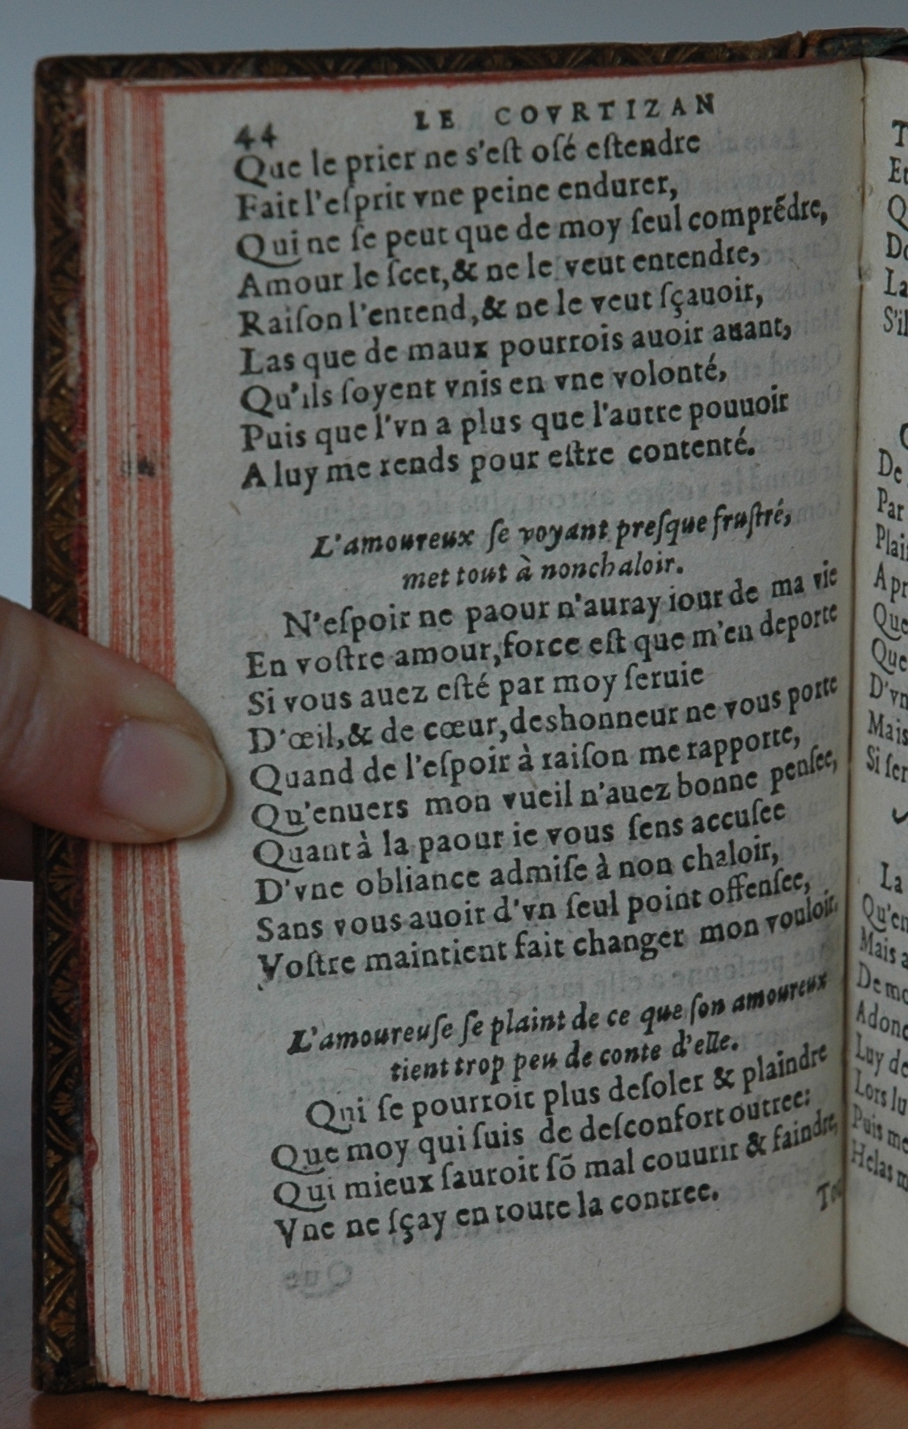 44 LE COVRTIZAN
Que le prier ne s'eſt oſé eſtendre
Fait l'eſprit vne peine endurer,
Qui ne ſe peut que de moy ſeul comprẽdre,
Amour le ſcet, & ne le veut entendre,
Raiſon l'entend, & ne le veut ſçauoir,
Las que de maux pourrois auoir auant,
Qu'ils ſoyent vnis en vne volonté,
Puis que l'vn a plus que l'autre pouuoir
A luy me rends pour eſtre contenté.
L'amoureux ſe voyant preſque fruſtré,
met tout à nonchaloir.
N'eſpoir ne paour n'auray iour de ma vie
En voſtre amour, force eſt que m'en deporte
Si vous auez eſté par moy ſeruie
D'œil, & de cœur, deshonneur ne vous porte
Quand de l'eſpoir à raiſon me rapporte,
Qu'enuers mon vueil n'auez bonne penſee,
Quant à la paour ie vous ſens accuſee
D'vne obliance admiſe à non chaloir,
Sans vous auoir d'vn ſeul point offenſee,
Voſtre maintient fait changer mon vouloir.
L'amoureuſe ſe plaint de ce que ſon amoureux
tient trop peu de conte d'elle.
Qui ſe pourroit plus deſoler & plaindre
Que moy qui ſuis de deſconfort outree:
Qui mieux ſauroit ſõ mal couurir & faindre,
Vne ne ſçay en toute la contree.
Et
La
S'il
De
Par
Plai
Apr
Que
Que
D'vn
Mais
Si ſer
La
Qu'en
Mais a
De mo
Adonc
Luy de
Lors lu
Puis me
Helas m